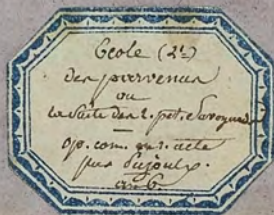 Ecole (2e)
des parvenus
ou
la Suite des 2. pet. Savoyards
—
op. com. en 1. acte
par Pujoulx.
an 6